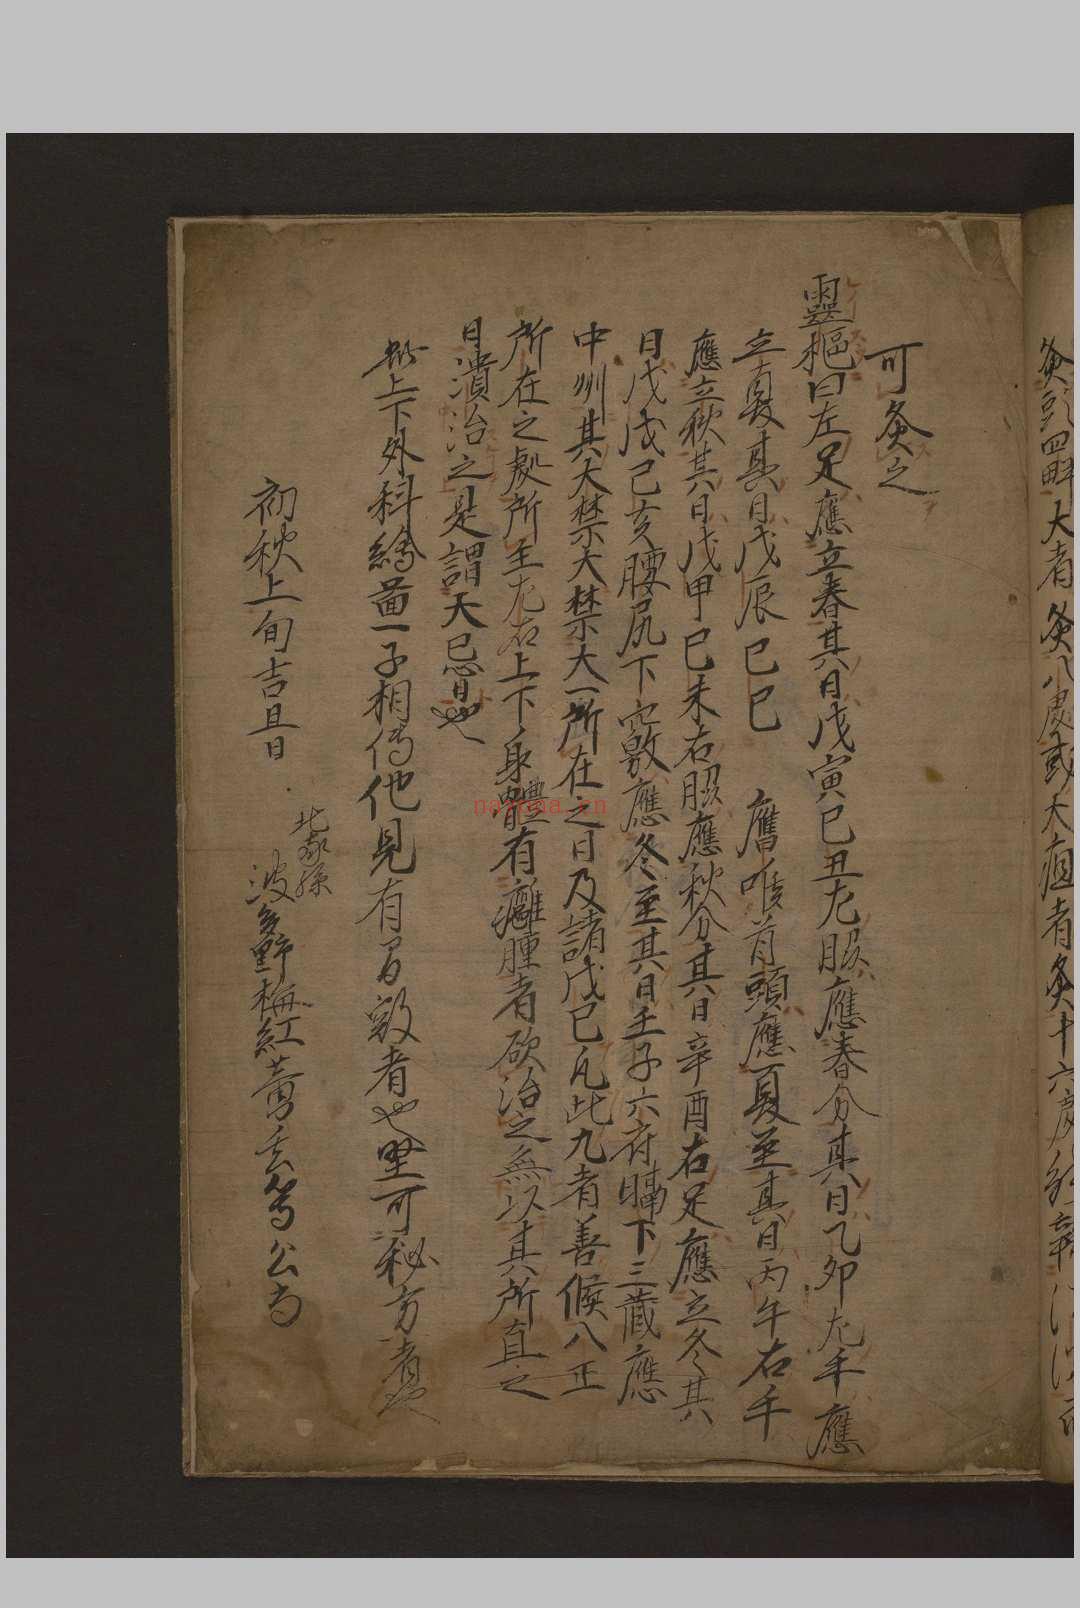 灸頭四畔大者灸八處或大疽者灸十六處
可灸之
靈樞曰左足應立春其日戊寅己丑左脇應春分其日乙卯左手應
立夏其日戊辰己巳 膺喉首頭應夏至其日丙午右手
應立秋其日戊申己未右脇應秋分其日辛酉右足應立冬其
日戊戌己亥腰尻下竅應冬至其日壬子六府膈下三藏應
中州其大禁大禁大一所在之日及諸戊己凡此九者善候八正
所在之處所主左右上下身體有癰腫者欲治之無以其所直之
日潰治之是謂天忌日也
上下外科繪圖一子相傳他見有 者也 可秘方者也
初秋上旬吉旦日
波多野梅紅
nayona.cn